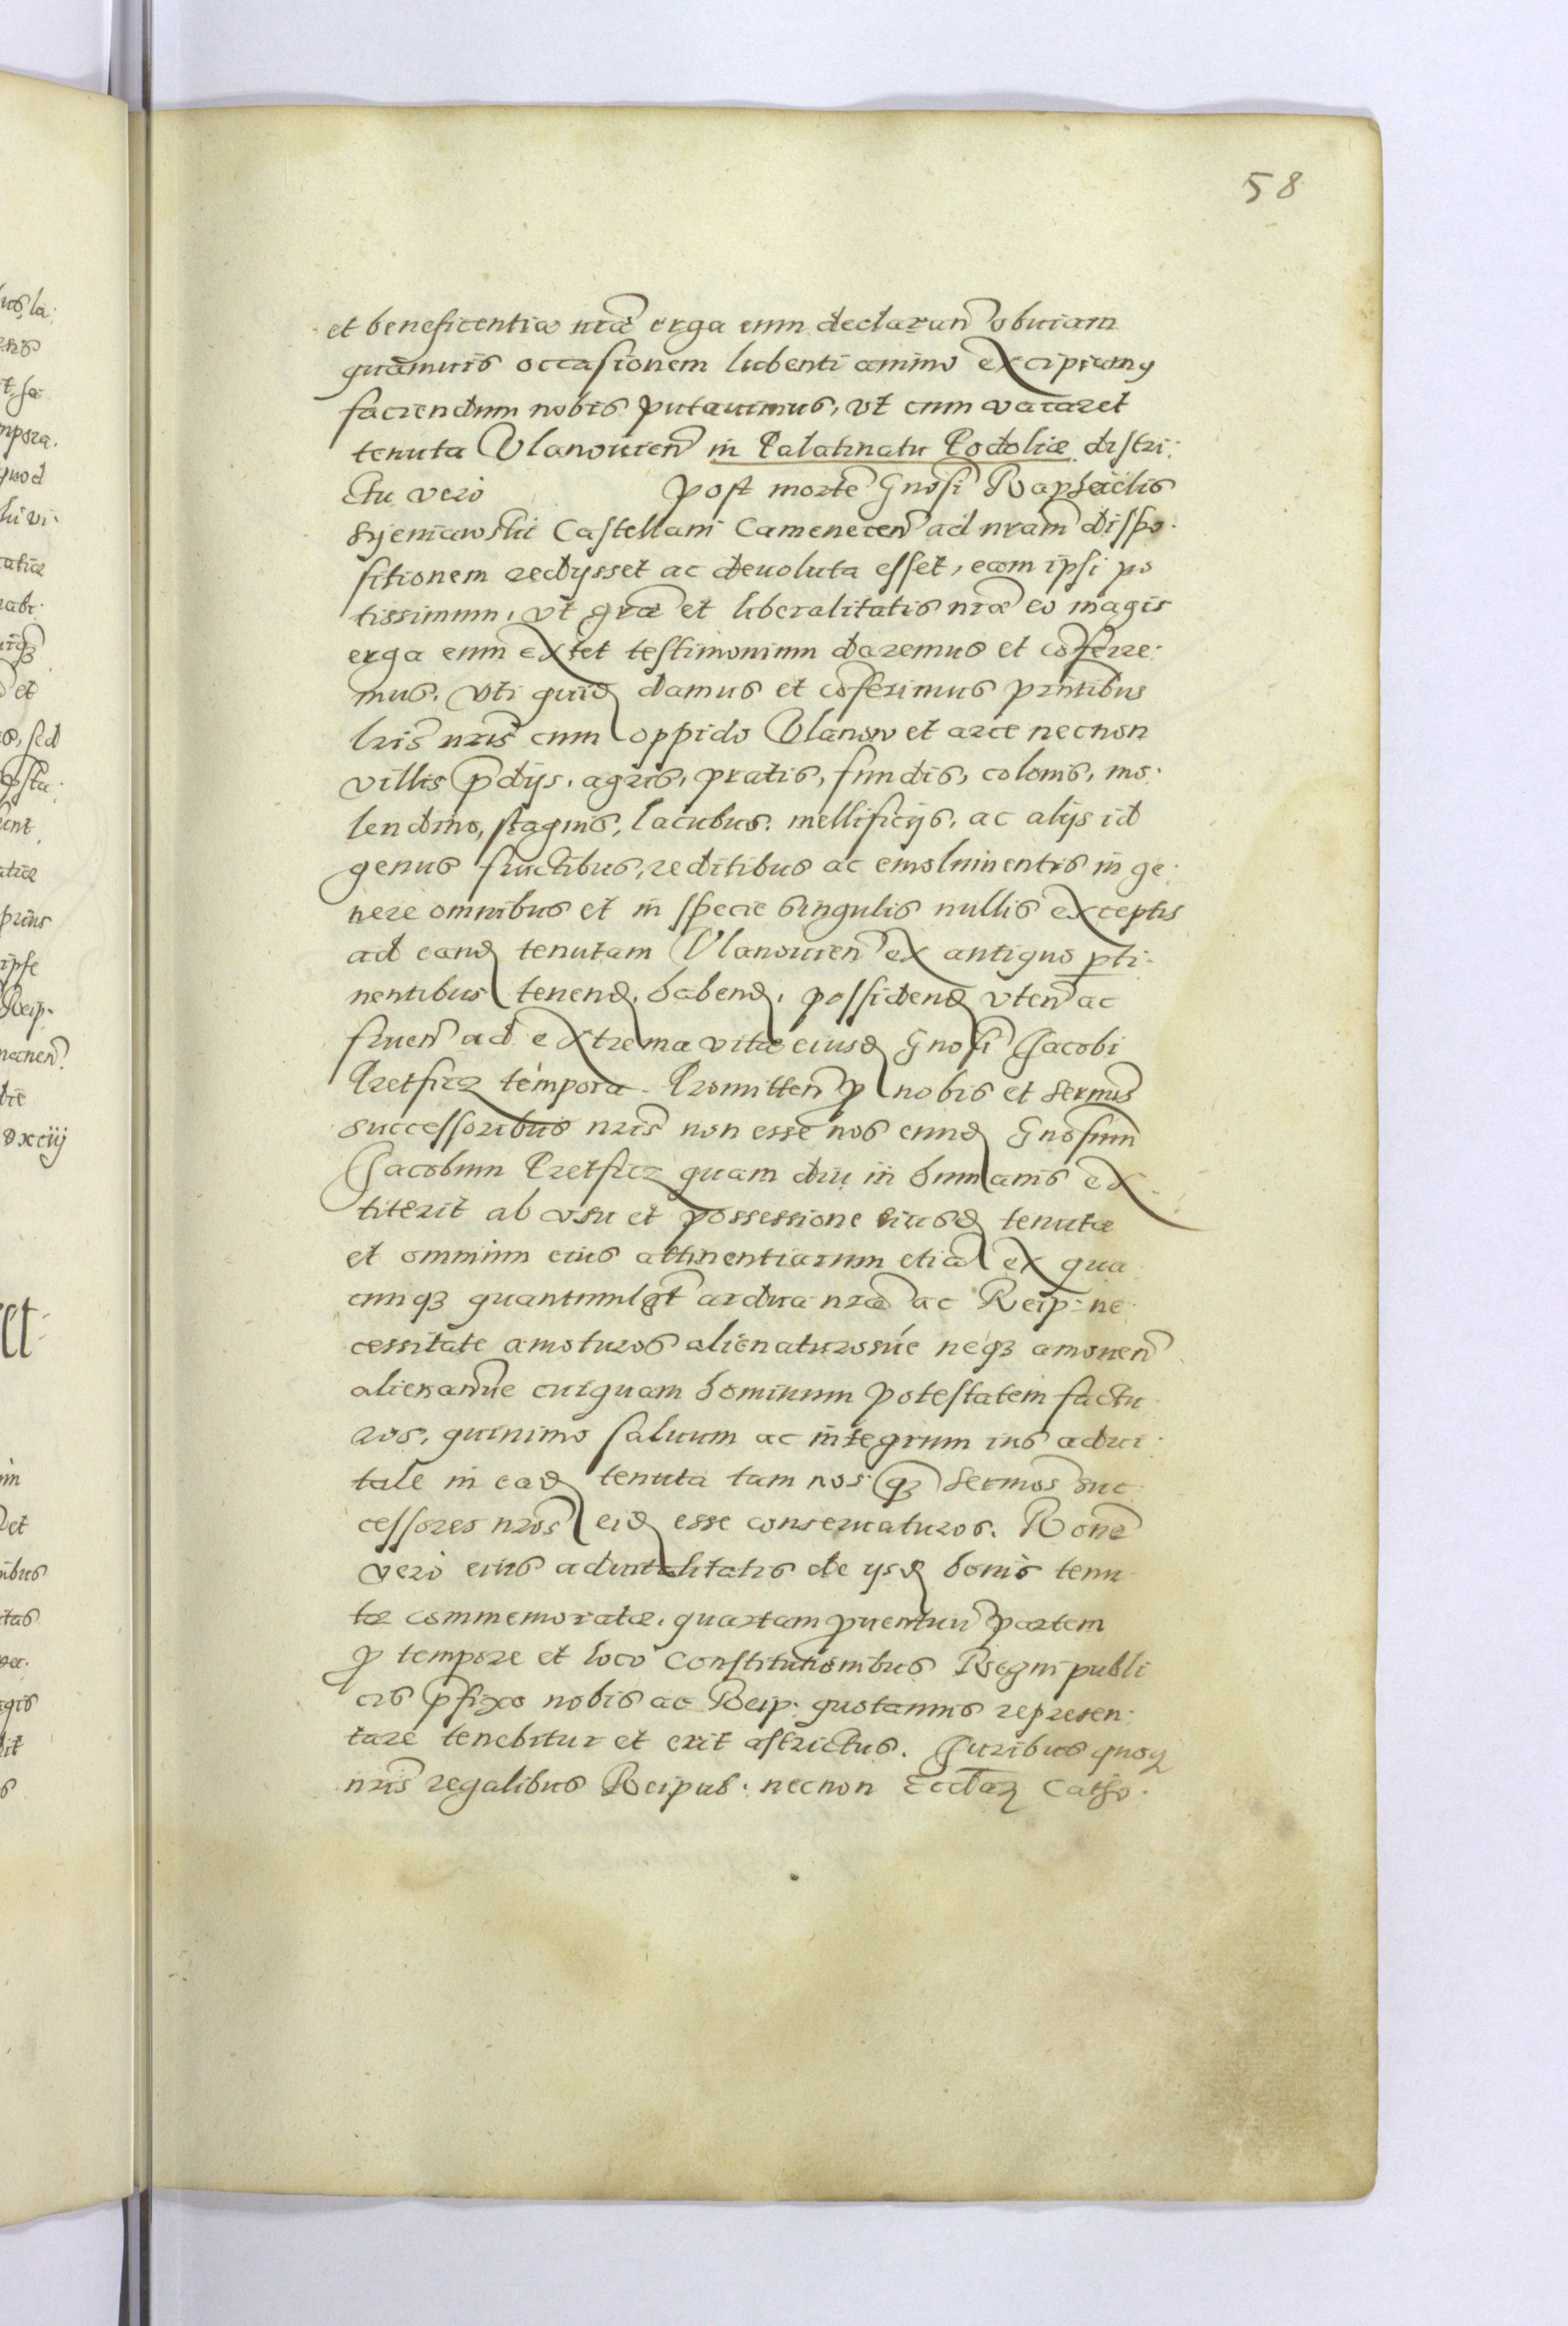 58
et beneficentiæ nr̃æ erga eum declaran̄ obuiam
quāmuis occasionem lubenti animo excipiamꝰ
faciendum nobis putauimus, vt cum vacaret
tenuta Vlanouien̄ in Palatinatu Podoliæ distri:
ctu vero post mortē Gnosi Raphaelis
Syeniawskii Castellani Camenecen̄ ad nram̄ dispo:
sitionem redijsset ac deuoluta esset, eam ipsi po
tissimum, vt gr̃æ et liberalitatis nr̃æ eo magis
erga eum extet testimonium daremus et cōferre:
mus. Vti quidē damus et cōferimus prn̄tibus
lris̄ nris̄ cum oppido Vlanow et arce necnon
villis p̄dijs, agris, pratis, fundis, colonis, mo:
lendino, stagnis, lacubus, mellificijs, ac alijs id
genus fructibus, reditibus ac emolumentis in ge:
nere omnibus et in specie singulis nullis exceptis
ad eandē tenutam Vlanouien̄ ex antiquo ꝑti:
nentibus tenend̄, habend̄, possidend̄ vten̄ ac
fruen̄ ad extrema vitæ eiusd̄ Gnosi Jacobi
Pretficz tempora. Promitten̄ ꝓ nobis et sermis̄
successoribus nris̄ non esse nos eund̄ Gnosum
Jacobum Pretficz quam diu in humanis ex:
titerit ab vsu et possessione eiusd̄ tenutæ
et omnium eius attinentiarum etiā ex qua
cunqꝫ quantumlibet ardua nrā ac Reip: ne:
cessitate amoturos alienaturosúe neqꝫ amouen̄
alienan̄ue cuiquam hominum potestatem factu
ros, quinimo saluum ac integrum ius aduı:
tale in ead̄ tenuta tam nos qꝫ̄ sermos̄ suc:
cessores nros̄ eid̄ esse conseruaturos. Ronē
vero eius aduitalitatis de ijsd̄ bonis tenu:
tæ commemoratæ, quartam ꝓuentuū partem
ꝓ tempore et loco Constitutionibus Regni publi
cis p̄fixo nobis ac Reip: quotannis represen:
tare tenebitur et erit astrictus. Juribus quoqꝫ
nris̄ regalibus Reipub: necnon Ecclaꝝ Catho: